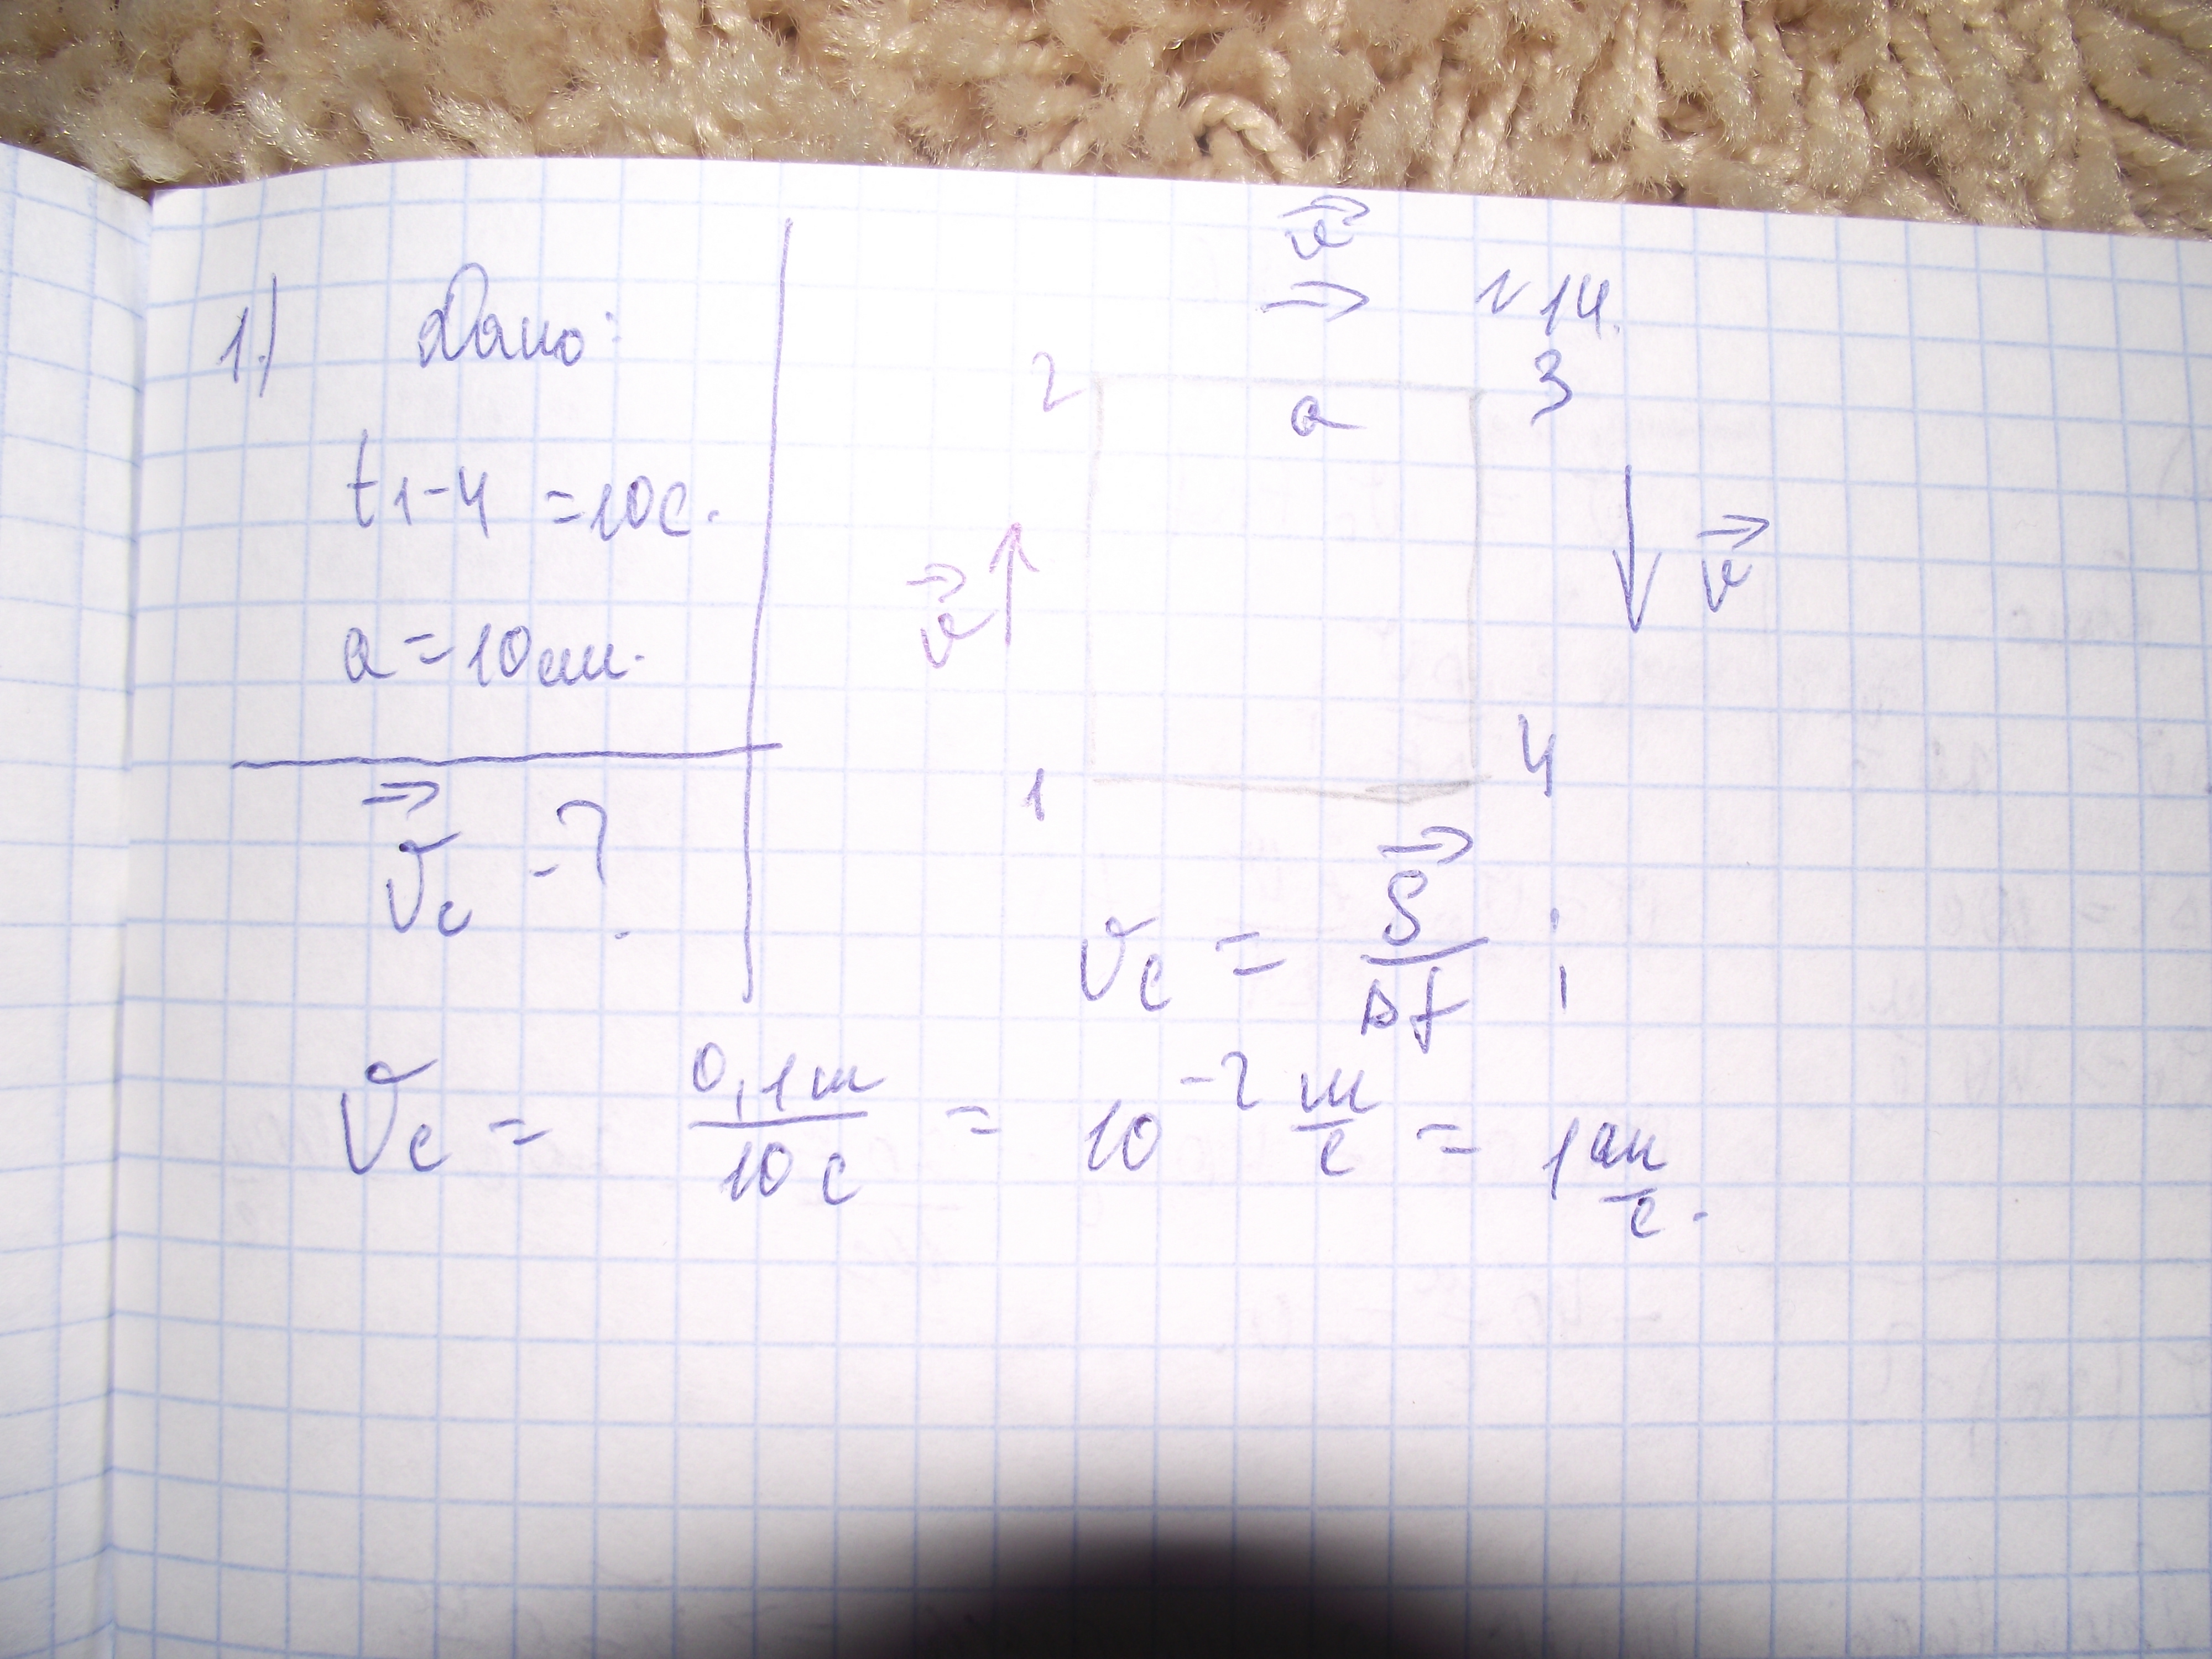 1.) Дано:
t1-4 = 10с.
a = 10см.
v⃗c - ?
v⃗
→ ~14.
2 a 3
v⃗ ↑ ↓ v⃗
1 4
vc = S⃗/Δt ;
vc = 0,1м/10с = 10⁻² м/с = 1 см/с.